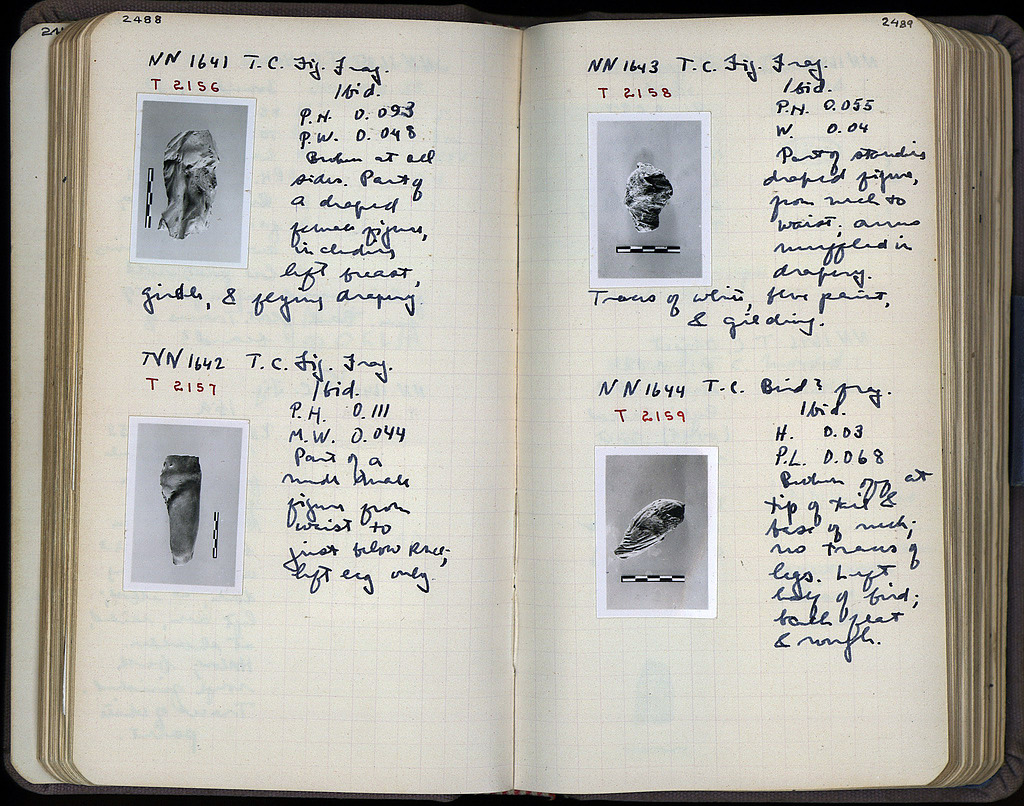 2488
NN 1641 T.C. Fig. Frag.
T 2156
Ibid.
P.H. 0.093
P.W. 0.048
Broken at all
sides. Part of
a draped
female figure,
including
left breast,
girdle, & flying drapery.
NN 1642 T.C. Fig. Frag.
T 2157
Ibid.
P.H. 0.111
M.W. 0.044
Part of a
nude female
figure from
waist to
just below knee;
left leg only.
2489
NN 1643 T.C. Fig. Frag.
T 2158
Ibid.
P.H. 0.055
W. 0.04
Part of standing
draped figure,
from neck to
waist; arms
muffled in
drapery.
Traces of white, blue paint,
& gilding.
NN 1644 T.C. Bird? frag.
T 2159
Ibid.
H. 0.03
P.L. 0.068
Broken off at
tip of tail &
base of neck;
no traces of
legs. Left
half of bird;
back flat
& rough.